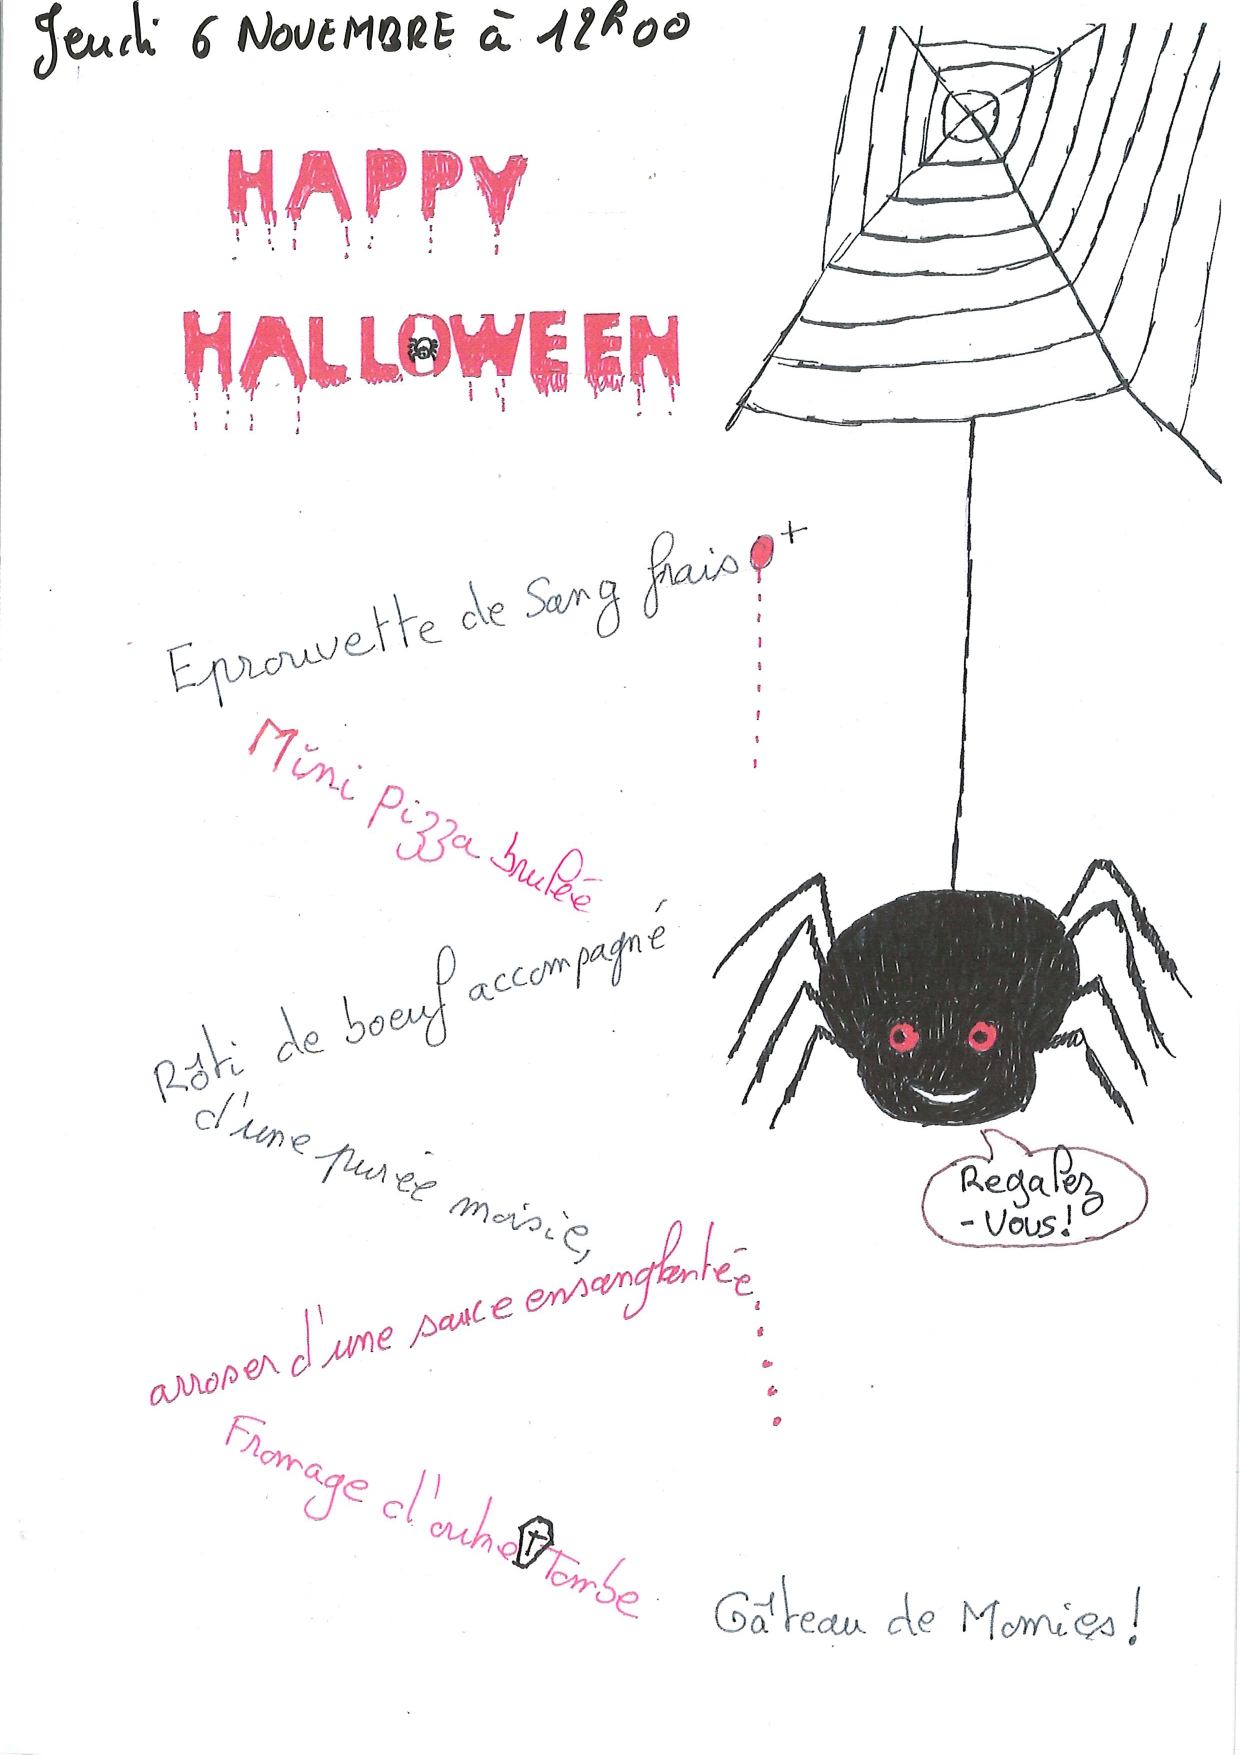 Jeudi 6 NOVEMBRE à 12h00
HAPPY
HALLOWEEN
Eprouvette de Sang frais O+
Mini pizza brulée
Rôti de boeuf accompagné
d'une purée moisie,
arroser d'une sauce ensanglantée
Fromage d'outre Tombe
Gâteau de Momies!
Regalez
-Vous!